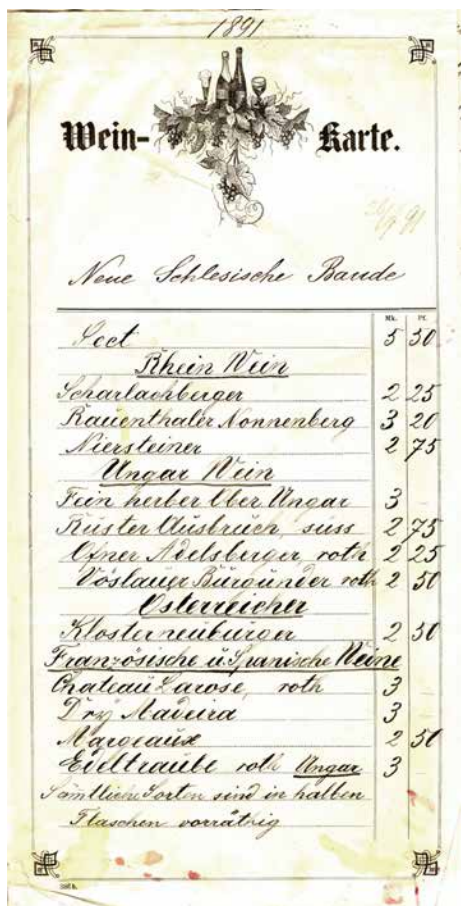 1891
Wein- Karte.
Neue Schlesische Baude
Mk. Pf.
Sect 5 50
Rhein Wein
Scharlachberger 2 25
Rauenthaler Nonnenberg 3 20
Niersteiner 2 75
Ungar Wein
Fein herber Ober Ungar 3 –
Ruster Ausbruch, süss 2 75
Ofner Adelsberger, roth 2 25
Vöslauer Burgunder roth 2 50
Österreicher
Klosterneuburger 2 50
Französische u. Spanische Weine
Chateau Larose, roth 3 –
Dry Madeira 3 –
Margeaux 2 50
Edeltraube roth Ungar 3 –
Sämtliche Sorten sind in halben
Flaschen vorräthig